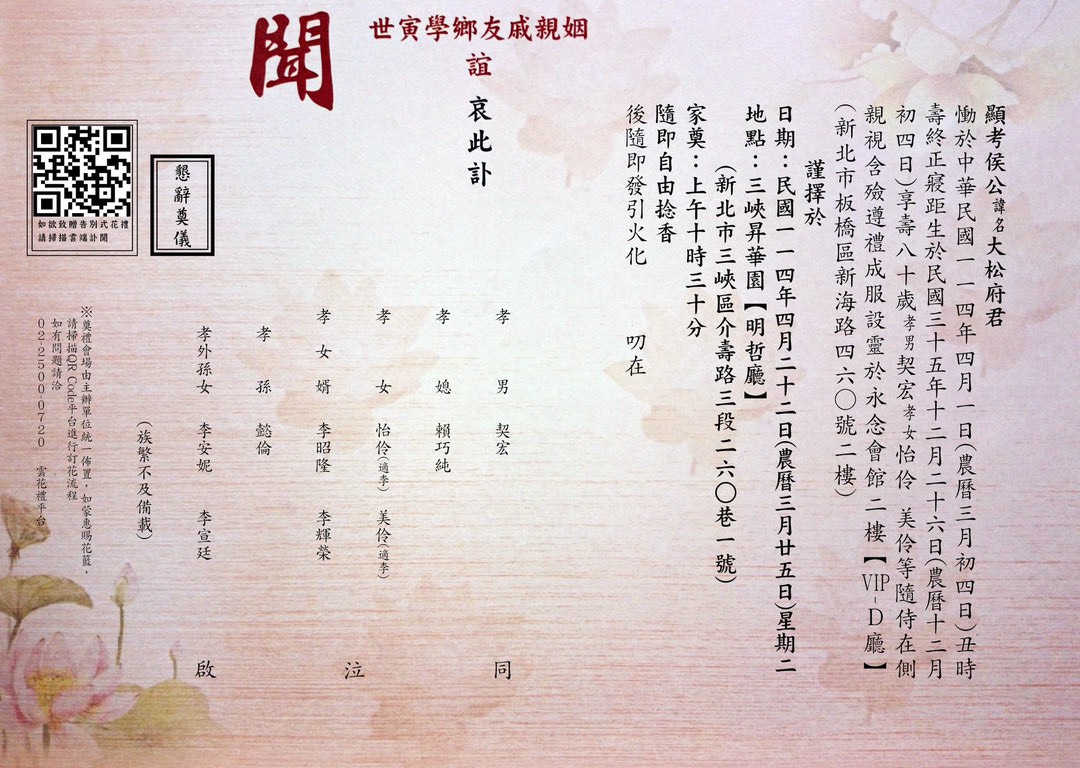 顯考侯公諱名大松府君
慟於中華民國一一四年四月一日(農曆三月初四日)丑時
壽終正寢距生於民國三十五年十二月二十六日(農曆十二月
初四日)享壽八十歲孝男契宏孝女怡伶　美伶等隨侍在側
親視含殮遵禮成服設靈於永念會館二樓【VIP-D廳】
(新北市板橋區新海路四六〇號二樓)
謹擇於
日期：民國一一四年四月二十二日(農曆三月廿五日)星期二
地點：三峽昇華園【明哲廳】
(新北市三峽區介壽路三段二六〇巷一號)
家奠：上午十時三十分
隨即自由捻香
後隨即發引火化　叨在
姻親戚友鄉學寅世
誼
哀此訃
聞
孝男　契宏
孝媳　賴巧純
孝女　怡伶(適李)　美伶(適李)
孝女婿　李昭隆　李輝榮
孝孫　懿倫
孝外孫女　李安妮　李宣廷
同
泣
啟
(族繁不及備載)
懇辭奠儀
如欲致贈告別式花禮
請掃描雲端訃聞
※奠禮會場由主辦單位統一佈置，如蒙惠賜花籃，
請掃描QR Code平台進行訂花流程
如有問題請洽
02-2500-0720　雲花禮平台